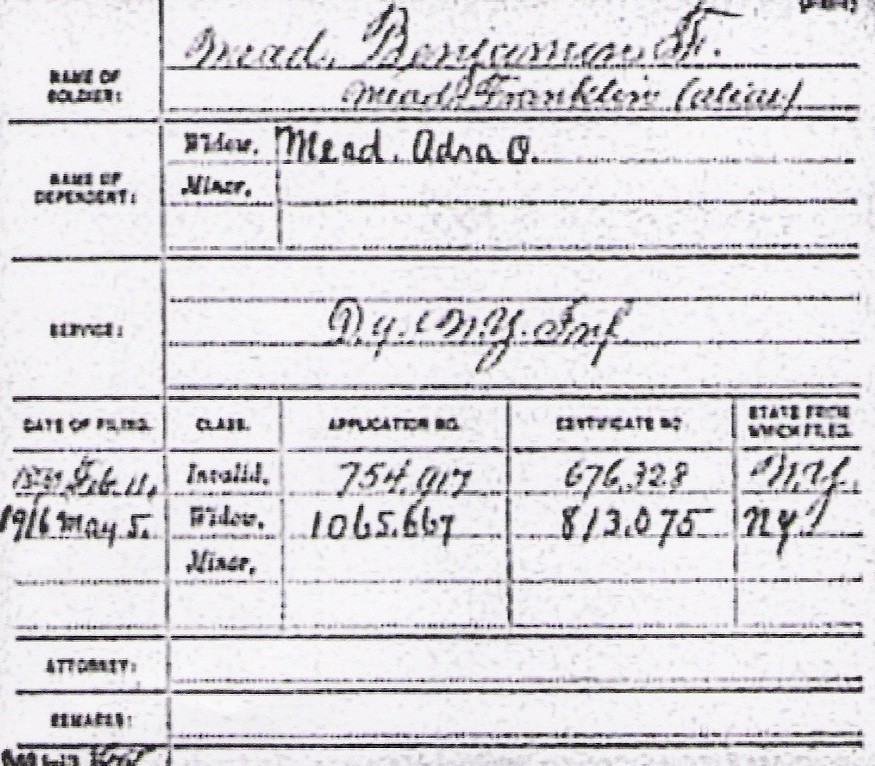 Mead, Benjamin F.
NAME OF SOLDIER: Mead, Franklin (alias)
NAME OF DEPENDENT: Widow. Mead. Adna O.
Minor.
SERVICE: N.Y. Inf
DATE OF FILING. CLASS. APPLICATION NO. CERTIFICATE NO. STATE FROM WHICH FILED.
Feb. 11, Invalid. 754,917 676,328 N.Y.
1916 May 5. Widow. 1065.667 813.075 N.Y.
Minor.
ATTORNEY:
REMARKS: